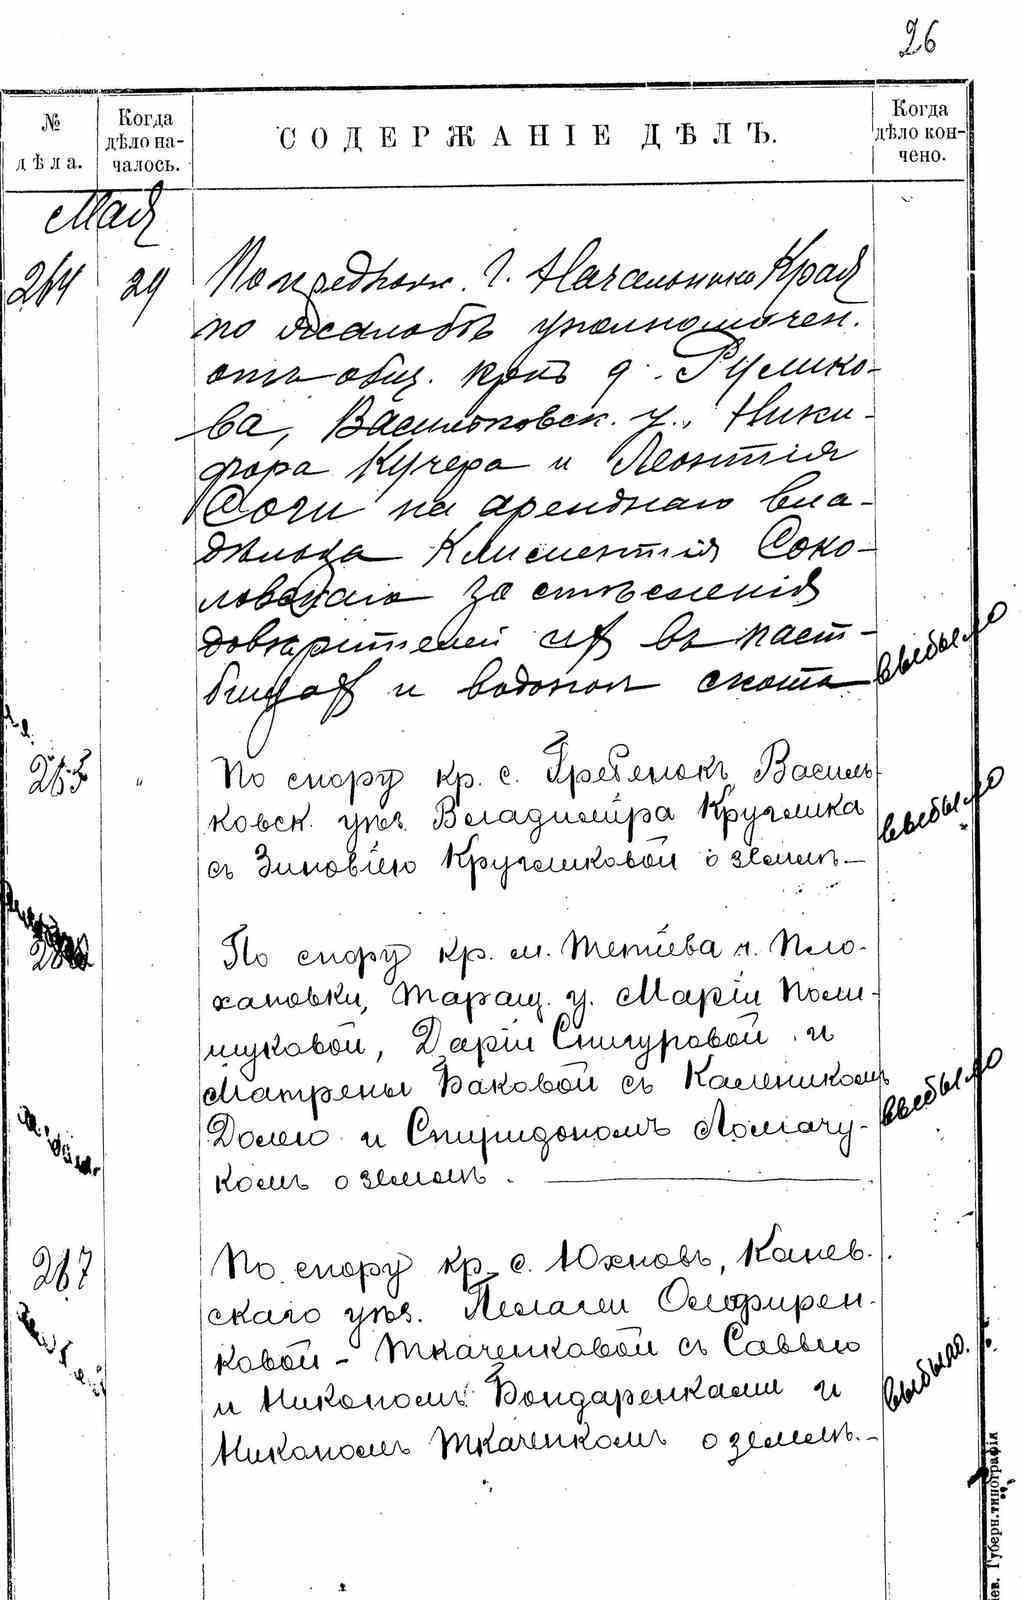 26
№ дѣла.
Когда дѣло началось.
СОДЕРЖАНІЕ ДѢЛЪ.
Когда дѣло кончено.
Мая
264 29 По предлож. Г. Начальника Края
по жалобѣ уполномочен.
отъ общ. крѣ д. Румико-
ва, Васильковск. у., Ники-
фора Кучера и Леонтія
Сочи на аренднаго вла-
дѣльца Клементія Соко-
ловскаго за стѣсненія
довѣрителей ихъ въ паст-
бищахъ и водопоя скота
выбыло
265 " По спору кр. с. Гребенокъ Василь-
ковск. уѣз. Владиміра Круглика
съ Зиновіею Кругликовой о землѣ—
выбыло
По спору кр. м. Тетіева ч. Пло-
хановки, Таращ. у. Маріи Поли-
щуковой, Даріи Снигуровой и
Матрены Баковой съ Каленикомъ
Долею и Спиридономъ Ломачу-
комъ о землѣ.
выбыло
267 По спору кр. с. Юхновъ, Канев-
скаго уѣз. Пелагеи Олефирен-
ковой - Ткаченковой съ Саввою
и Никономъ Бондаренками и
Никономъ Ткаченкомъ о землѣ.—
выбыло.
Губерн. типографія